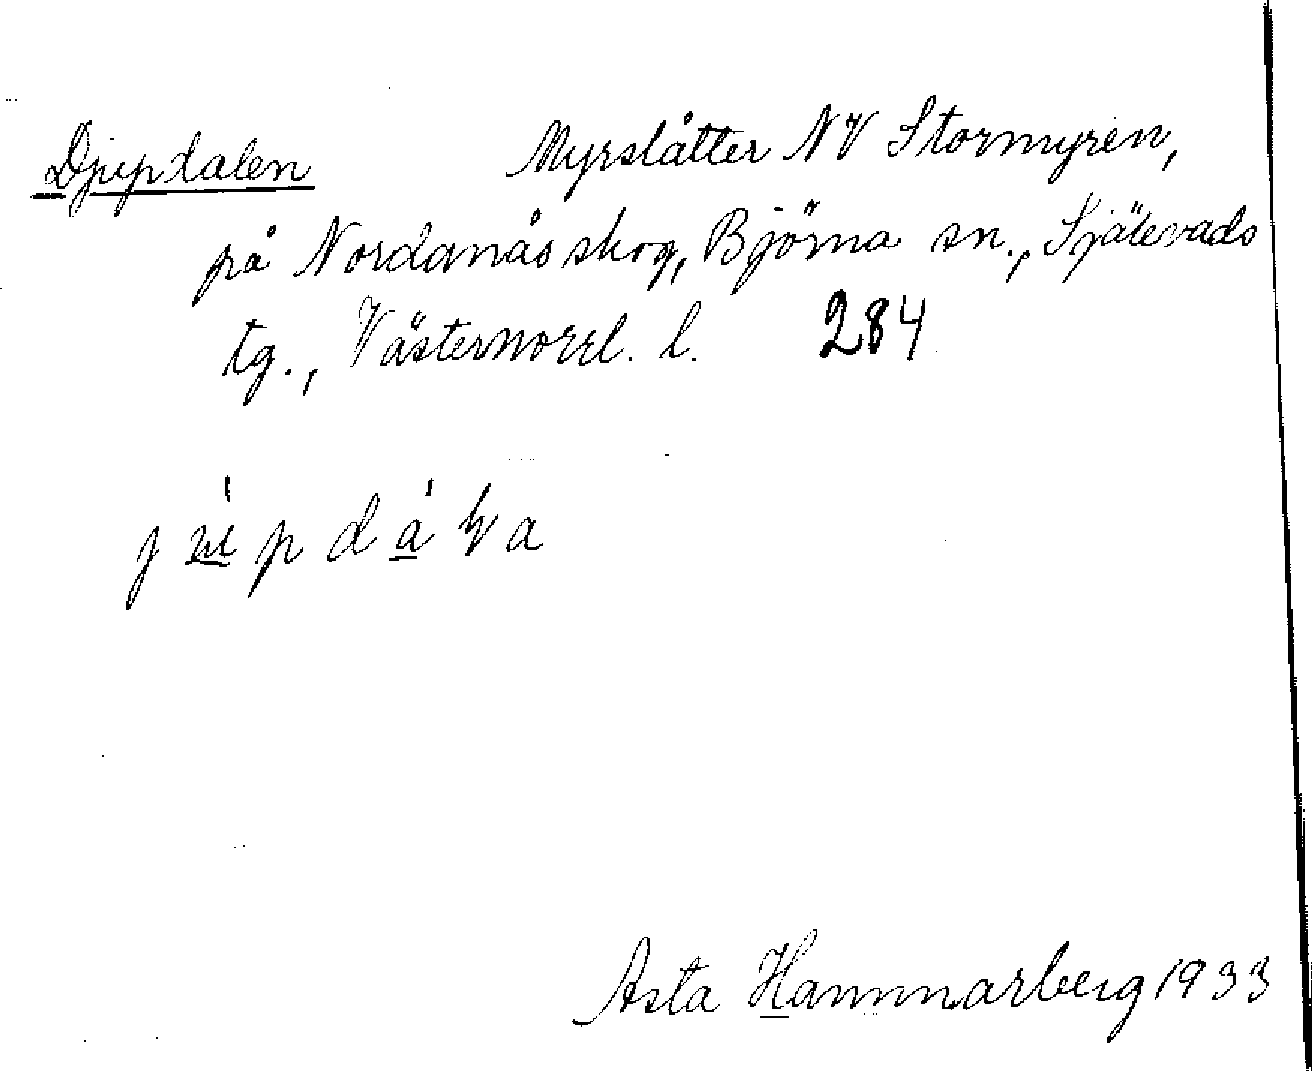 Djupdalen Myrslåtter NV Stormyren,
på Nordanås skog, Björna sn., Själevads
tg., Västernorrl. l. 284
Asta Hammarberg 1933